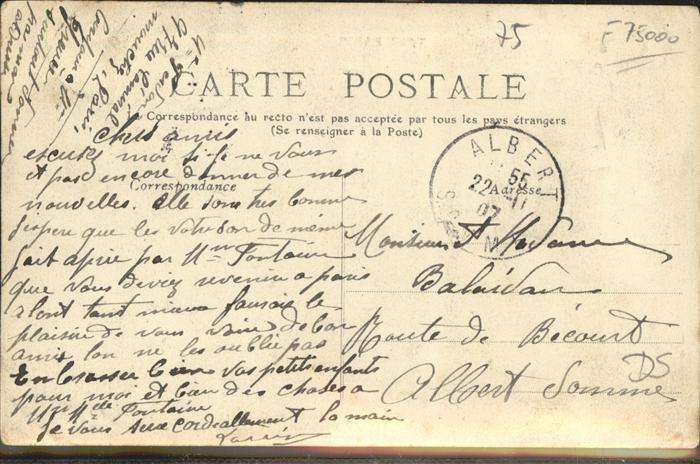 75
F 75000
CARTE POSTALE
La Correspondance au recto n'est pas acceptée par tous les pays étrangers
(Se renseigner à la Poste)
Correspondance
Adresse
ALBERT
55
22
07
chers amis
escusez moi si je ne vous
et pas encore donner de mes
nouvelles. elle sont tres bonne
j'espere que les votre son de meme
fait aprie par Mme Fontaine
que vous deviez revenir a paris
alont tant mieux j'aurais le
plaisir de vous voire de bon
amis lon ne les oublie pas
Embrasser bien vos petits enfants
pour moi et bien des choses a
Mr Melle Fontaine
Je vous sere cordeallement la main
Monsieur Madame
Balaidan
Route de Bécourt
Albert Somme
DS